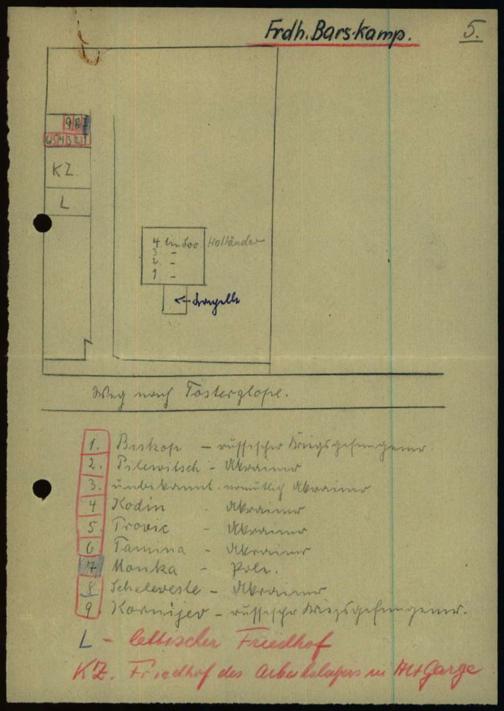 Frdh. Barskamp. 5.
9 8 7
6 5 4 3 2 1
KZ
L
4. Holländer
3. -
2. -
1. -
← Kapelle
Weg nach Tosterglope.
1. Biskop - russischer Kriegsgefangener.
2. Pilewitsch - Ukrainer
3. unbekannt vermutlich Ukrainer
4 Kodin - Ukrainer
5. Trovic - Ukrainer
6 Tamina - Ukrainer
7 Monka - Pole.
8 Scheleveste - Ukrainer
9 Kornijev - russischer Kriegsgefangener.
L - lettischer Friedhof
KZ. Friedhof des Arbeitslagers in Alt Garge